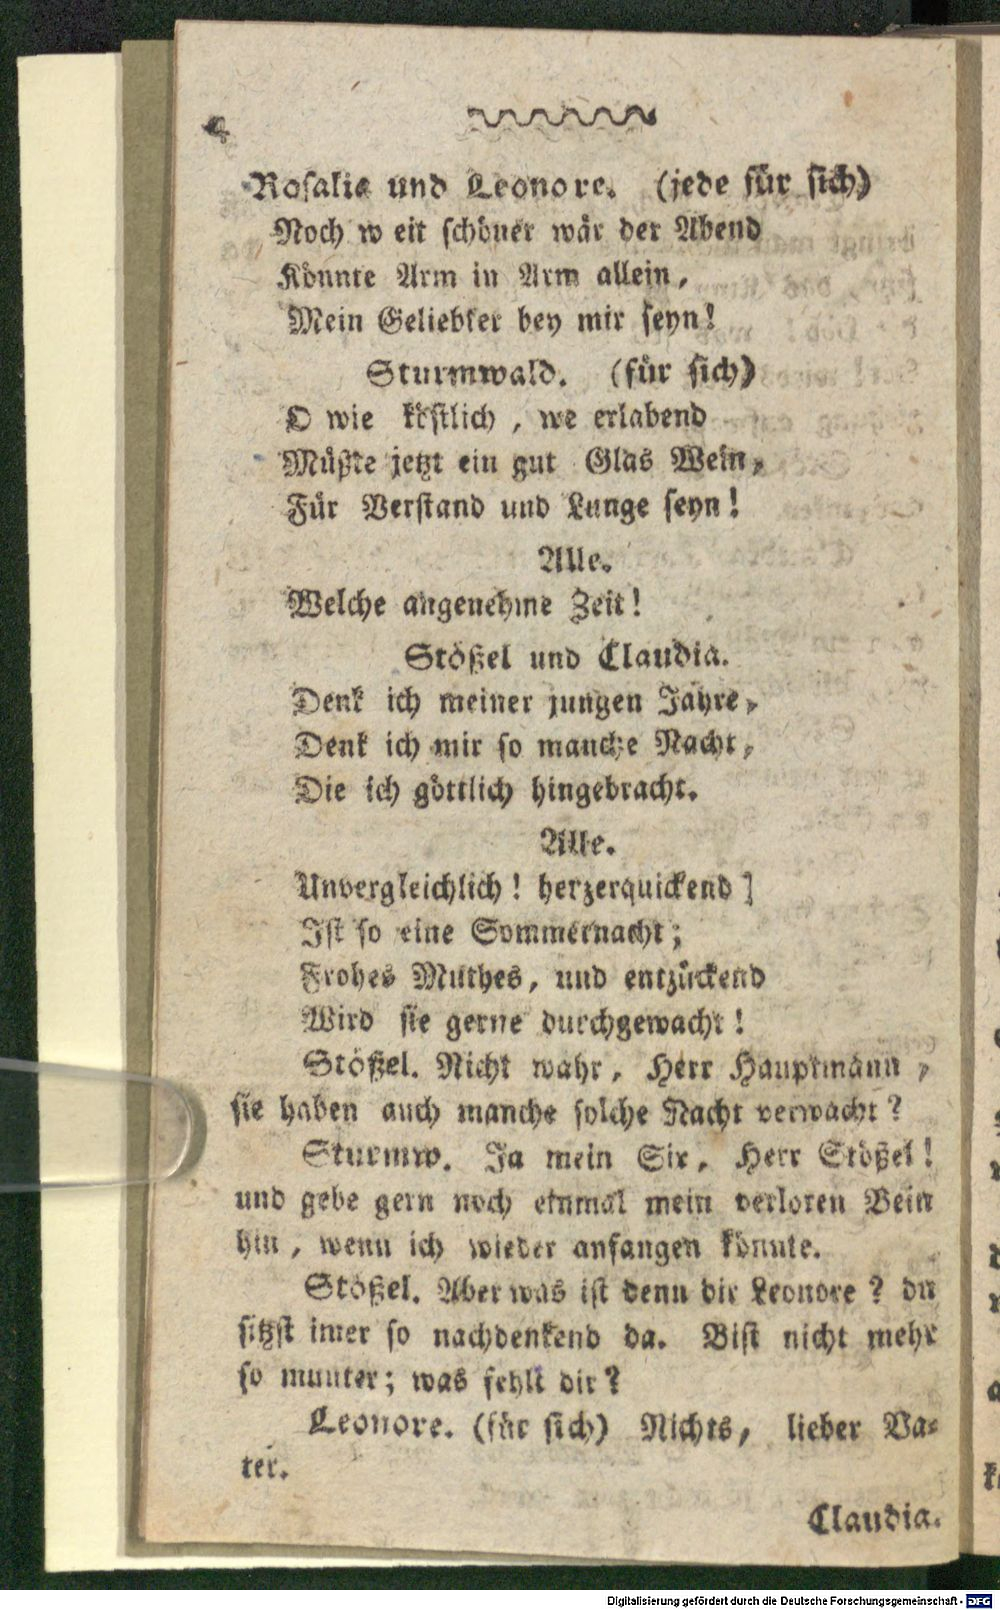 4
Rosalia und Leonore. (jede für sich)
Noch w eit schöner wär der Abend
Könnte Arm in Arm allein,
Mein Geliebter bey mir seyn!
Sturmwald. (für sich)
O wie köstlich, we erlabend
Müßte jetzt ein gut Glas Wein,
Für Verstand und Lunge seyn!
Alle.
Welche angenehme Zeit!
Stößel und Claudia.
Denk ich meiner jungen Jahre,
Denk ich mir so manche Nacht,
Die ich göttlich hingebracht.
Alle.
Unvergleichlich! herzerquickend]
Ist so eine Sommernacht;
Frohes Muthes, und entzückend
Wird sie gerne durchgewacht!
Stößel. Nicht wahr, Herr Hauptmann,
sie haben auch manche solche Nacht verwacht?
Sturmw. Ja mein Six, Herr Stößel!
und gebe gern noch einmal mein verloren Bein
hin, wenn ich wieder anfangen könnte.
Stößel. Aber was ist denn dir Leonore? du
sitzst imer so nachdenkend da. Bist nicht mehr
so munter; was fehlt dir?
Leonore. (für sich) Nichts, lieber Va-
ter.
Claudia.
Digitalisierung gefördert durch die Deutsche Forschungsgemeinschaft - DFG